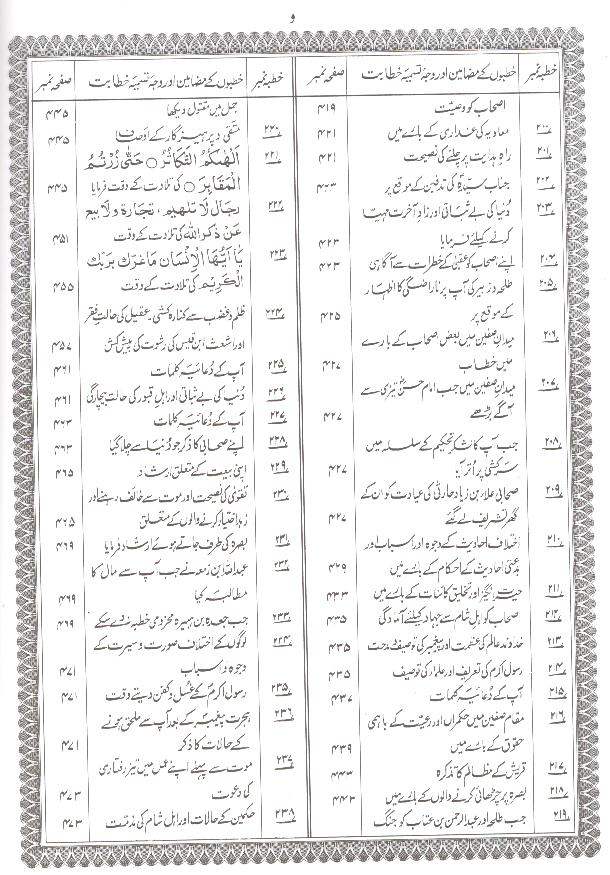 و
خطبہ نمبر خطبوں کے مضامین اور وجہ تسمیہ خطابت صفحہ نمبر
اصحاب کو وصیت ۴۱۹
۲۰۰ معاویہ کی غداری کے بارے میں ۴۲۱
۲۰۱ راہِ ہدایت پر چلنے کی نصیحت ۴۲۱
۲۰۲ جناب سیدہؑ کی تدفین کے موقع پر ۴۲۳
۲۰۳ دُنیا کی بے ثباتی اور زادِ آخرت مہیا
کرنے کیلئے فرمایا ۴۲۳
۲۰۴ اپنے اصحاب کو عقبیٰ کے خطرات سے آگاہی ۴۲۳
۲۰۵ طلحہ و زبیر کی آپ پر ناراضگی کا اظہار
کے موقع پر ۴۲۵
۲۰۶ میدان صفین میں بعض اصحاب کے بارے
میں خطاب ۴۲۷
۲۰۷ میدان صفین میں جب امام حسنؑ تیزی سے
آگے بڑھے ۴۲۷
۲۰۸ جب آپ کا لشکر تحکیم کے سلسلہ میں
سرکشی پر اُتر آیا ۴۲۷
۲۰۹ صحابی علاء بن زیاد حارثی کی عیادت کو ان کے
گھر تشریف لے گئے ۴۲۷
۲۱۰ اختلاف احادیث کے وجوہ اور اسباب اور
بدعتی احادیث کے احکام کے بارے میں ۴۲۹
۲۱۱ حیرت انگیز اور تخلیق کائنات کے بارے میں ۴۳۳
۲۱۲ صحاب کو اہل شام سے جہاد کیلئے آمادگی ۴۳۵
۲۱۳ خداوند عالم کی عظمت اور پیغمبر کی توصیف و مدحت ۴۳۵
۲۱۴ رسول اکرمؐ کی تعریف اور علماء کی توصیف ۴۳۵
۲۱۵ آپ کے دُعائیہ کلمات ۴۳۷
۲۱۶ مقام صفین میں حکمراں اور رعیت کے باہمی
حقوق کے بارے میں ۴۳۹
۲۱۷ قریش کے مظالم کا تذکرہ ۴۴۳
۲۱۸ بصرہ پر چڑھائی کرنے والوں کے بارے میں ۴۴۳
۲۱۹ جب طلحہ اور عبدالرحمن بن عتاب کو جنگ
خطبہ نمبر خطبوں کے مضامین اور وجہ تسمیہ خطابت صفحہ نمبر
جمل میں مقتول دیکھا ۴۴۵
۲۲۰ متقی و پرہیزگار کے اوصاف ۴۴۵
۲۲۱ اَلْهٰىكُمُ التَّكَاثُرُ ○ حَتّٰى زُرْتُمُ
الْمَقَابِرَ ○ کی تلاوت کے وقت فرمایا ۴۴۵
۲۲۲ رجال لا تلهيهم تجارة ولا بيع
عن ذكر الله کی تلاوت کے وقت ۴۵۱
۲۲۳ يا ايها الانسان ماغرك بربك
الكريم کی تلاوت کے وقت ۴۵۵
۲۲۴ ظلم و غضب سے کنارہ کشی، عقیل کی حالتِ فقر
اور اشعث ابن قیس کی رشوت کی پیش کش ۴۵۷
۲۲۵ آپ کے دُعائیہ کلمات ۴۶۱
۲۲۶ دُنیا کی بے ثباتی اور اہل قبور کی حالت بیچارگی ۴۶۱
۲۲۷ آپ کے دُعائیہ کلمات ۴۶۳
۲۲۸ اپنے صحابی کا ذکر جو دُنیا سے چلا گیا ۴۶۳
۲۲۹ اپنی بیعت کے متعلق ارشاد ۴۶۵
۲۳۰ تقویٰ کی نصیحت اور موت سے خائف رہنے اور
زہد اختیار کرنے والوں کے متعلق ۴۶۵
۲۳۱ بصرہ کی طرف جاتے ہوئے ارشاد فرمایا ۴۶۹
۲۳۲ عبداللہ ابن زمعہ نے جب آپ سے مال کا
مطالبہ کیا ۴۶۹
۲۳۳ جب جعدہ بن ہبیرہ مخزومی خطبہ نہ دے سکے ۴۶۹
۲۳۴ لوگوں کے اختلاف صورت و سیرت کے
وجوہ و اسباب ۴۷۱
۲۳۵ رسول اکرمؐ کے غسل و کفن دیتے وقت ۴۷۱
۲۳۶ ہجرت پیغمبرؐ کے بعد آپ سے ملحق ہونے
کے حالات کا ذکر ۴۷۱
۲۳۷ موت سے پہلے اپنے عمل میں تیز رفتاری
کی دعوت ۴۷۳
۲۳۸ حکمین کے حالات اور اہل شام کی مذمت ۴۷۳